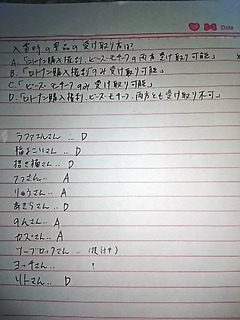 Date
入賞時の景品の受け取り方は?
A.「ロトナン購入権利、ピース・モチーフの両方受け取り可能」
B.「ロトナン購入権利のみ受け取り可能」
C.「ピース・モチーフのみ受け取り可能」
D.「ロトナン購入権利、ピース・モチーフ、両方とも受け取り不可」
ラファエルさん‥ D
梅よこりさん‥ D
招き猫さん‥ D
さん‥ A
りゅうさん‥ A
あきらさん‥ D
さん‥ A
カズさん‥ A
ソープロックさん‥
ヨッチさん‥ ?
リトさん‥ D